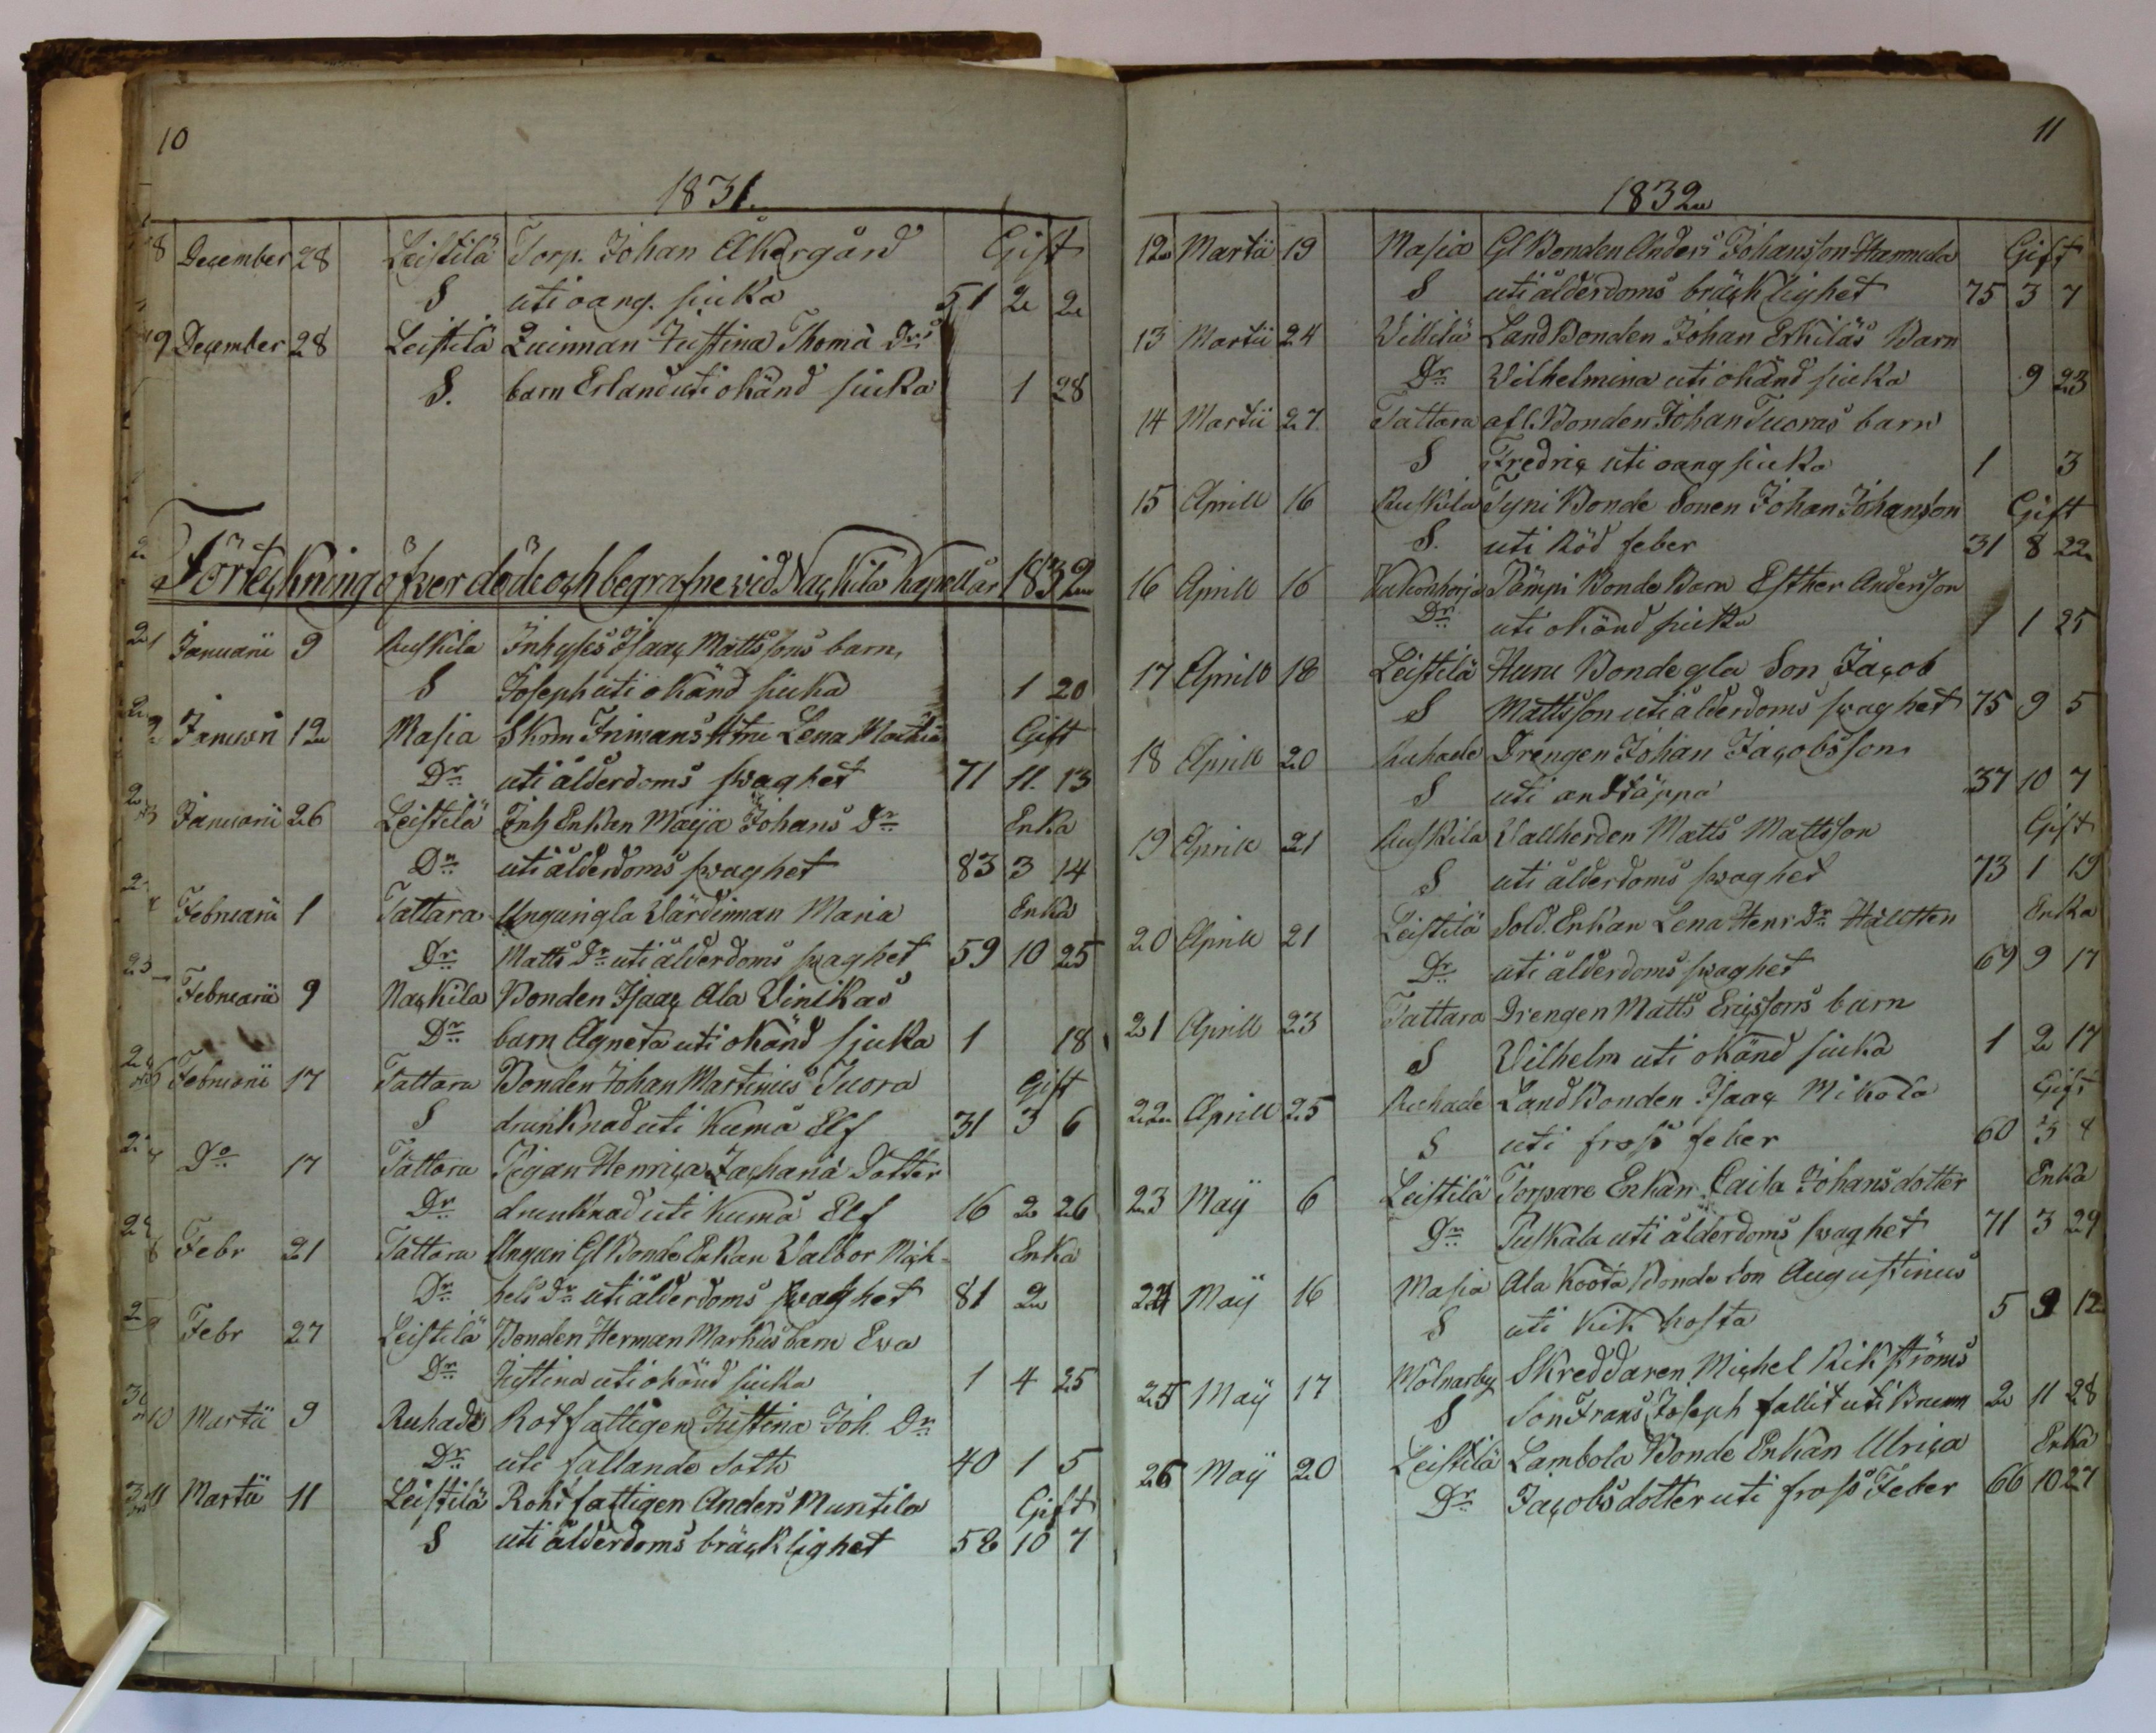 10
1831.
8 December 28 Leistilä Torp. Johan Åkergård Gift
S uti oang. siuka 51 2 2
9 December 28 Leistilä Quinnan Justina Thomæ Drs
S. barn Erland uti okänd siuka 1 28
Förteckning öfver döde och begrafne vid Nackila Kapell år 1832
1 Januarii 9 Ruskila Inhyses Isaac Mattssons barn,
S Joseph uti okänd siuka 1 20
2 Januari 12 Masia Skom Frimans Hru Lena Gift
Dr uti ålderdoms svaghet 71 11. 13
3 Januarii 26 Leistilä Inh Enkan Maija Johans Dr Enka
Dr uti ålderdoms svaghet 83 3 14
Februarii 1 Tattara Ungarigla Värdinnan Maria Enka
Dr Matts Dr uti ålderdoms svaghet 59 10 25
Februarii 9 Nackila Bonden Isaac Ala Vinikas
Dr barn Agneta uti okänd sjuka 1 18
6 Februarii 17 Tattara Bonden Johan Martinius Tuora Gift
S drunknad uti Kumå Elf 31 3 6
Do 17 Tattara Pigan Henrica Zachariæ Dotter
Dr drunknad uti Kumå Elf 16 2 26
8 Febr 21 Tattara Ungari Gl Bonde Enkan Valbor Mich- Enka
Dr hels Dr uti ålderdoms svaghet 81 2
9 Febr 27 Leistilä Bonden Herman Markus barn Eva
Dr Justina uti okänd siuka 1 4 25
10 Martii 9 Ruhade Rotfattigen Justina Joh. Dr
Dr uti fallande soth 40 1 5
11 Martii 11 Leistilä Rohtfattigen Anders Muntila Gift
S uti ålderdoms bräcklighet 58 10 7
11
1832
12 Martii 19 Masia Gl Bonden Anders Johansson Gift
S uti ålderdoms bräcklighet 75 3 7
13 Martii 24 Villilä Land Bonden Johan Erkiläs Barn
Dr Vilhelmina uti okänd siuka 9 23
14 Martii 27 Tattara afl. Bonden Johan Tuoras barn
S Fredric uti oang siuka 1 3
15 Aprill 16 Ruskila Tyni Bonde Sonen Johan Johansson Gift
S. uti Röd feber 31 8 22
16 Aprill 16 Kukonharja Pämpi Bonde Barn Esther Andersson
Dr uti okänd siuka 1 1 25
17 Aprill 18 Leistilä Huru Bonde gla Son Jacob
S Mattsson uti ålderdoms svaghet 75 9 5
18 Aprill 20 Ruhade Drengen Johan Jacobsson
S uti andtäppa 37 10 7
19 Aprill 21 Ruskila Vallherden Matts Mattsson Gift
S uti ålderdoms svaghet 73 1 19
20 Aprill 21 Leistilä Sold. Enkan Lena Henr Dr Hällsten Enka
Dr uti ålderdoms svaghet 69 9 17
21 Aprill 23 Tattara Drengen Matts Ericssons barn
S Vilhelm uti okänd siuka 1 2 17
22 Aprill 25 Ruhade Land Bonden Isaac Mikola Gift
S uti fross feber 60 3 4
23 Maij 6 Leistilä Torpare Enkan Caisa Johans dotter Enka
Dr Puskala uti ålderdoms svaghet 71 3 29
24 Maij 16 Masia Ala Koota Bonde Son Augustinus
S uti kik hosta 5 9 12
25 Maij 17 Molnarby Skreddaren Michel Rikströms
S Son Frans Joseph fallit uti Brunn 2 11 28
26 Maij 20 Leistilä Lambola Bonde Enkan Ulrica Enka
Dr Jacobs dotter uti fross Feber 66 10 27